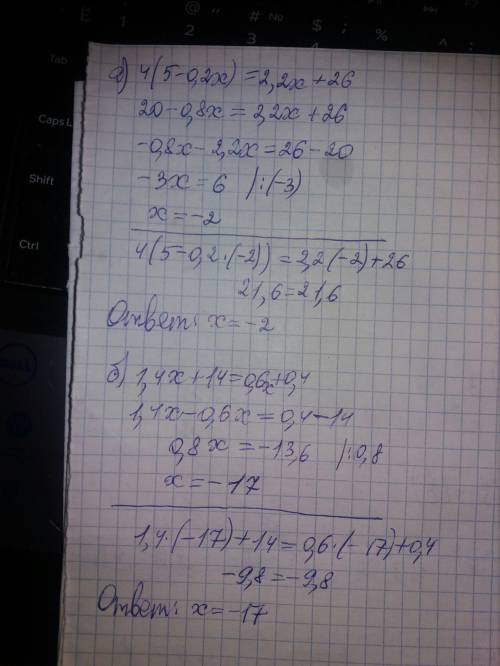 E 1 @ 2 " # № 3 $ ; % ^ :
Tab
Caps L
Shift
Ctrl
DELL
а) 4(5-0,2x)=2,2x+26
20-0,8x=2,2x+26
-0,8x-2,2x=26-20
-3x=6 /:(-3)
x=-2
4(5-0,2·(-2))=2,2(-2)+26
21,6=21,6
Ответ: x=-2
б) 1,4x+14=0,6x+0,4
1,4x-0,6x=0,4-14
0,8x=-13,6 /:0,8
x=-17
1,4·(-17)+14=0,6·(-17)+0,4
-9,8=-9,8
Ответ: x=-17